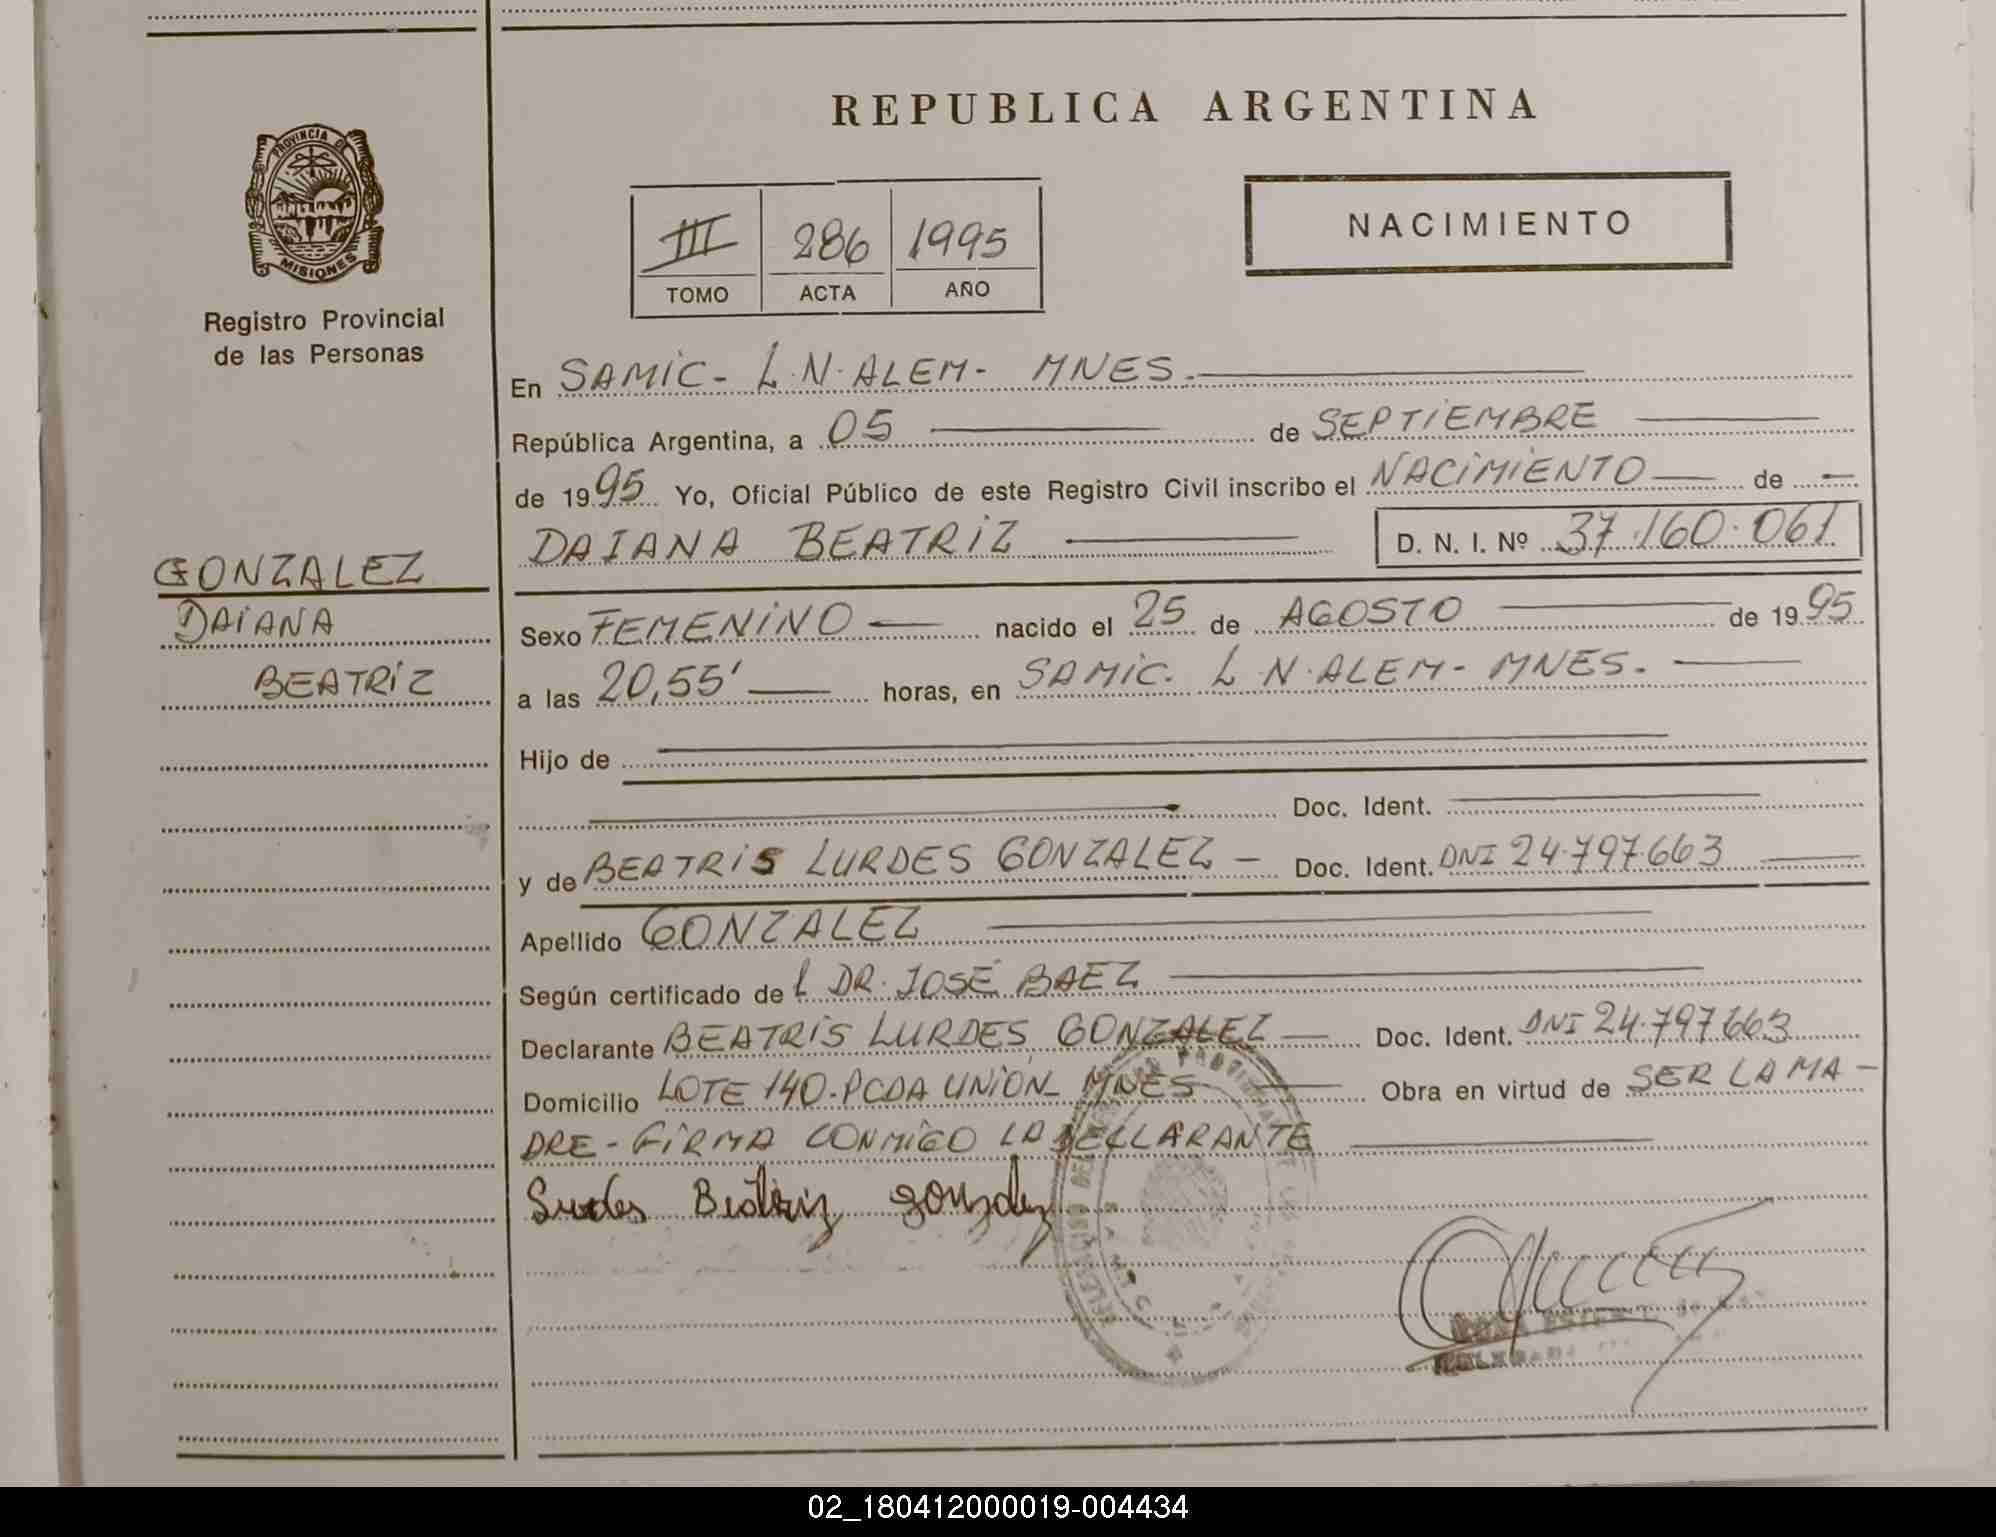 REPUBLICA ARGENTINA
PROVINCIA DE
MISIONES
Registro Provincial
de las Personas
III 286 1995
TOMO ACTA AÑO
NACIMIENTO
GONZALEZ
DAIANA
BEATRIZ
En SAMIC- L.N.ALEM- MNES.
República Argentina, a 05 de SEPTIEMBRE
de 1995 Yo, Oficial Público de este Registro Civil inscribo el NACIMIENTO de
DAIANA BEATRIZ D. N. I. Nº 37.160.061
Sexo FEMENINO nacido el 25 de AGOSTO de 1995
a las 20,55' horas, en SAMIC. L N.ALEM- MNES.
Hijo de
Doc. Ident.
y de BEATRIS LURDES GONZALEZ - Doc. Ident. DNI 24.797.663
Apellido GONZALEZ
Según certificado del DR. JOSÉ BAEZ
Declarante BEATRIS LURDES GONZALEZ Doc. Ident. DNI 24.797663
Domicilio LOTE 140-PCDA UNION- MNES Obra en virtud de SER LA MA-
DRE-FIRMA CONMIGO LA DECLARANTE
Beatriz gonzalez
02_180412000019-004434